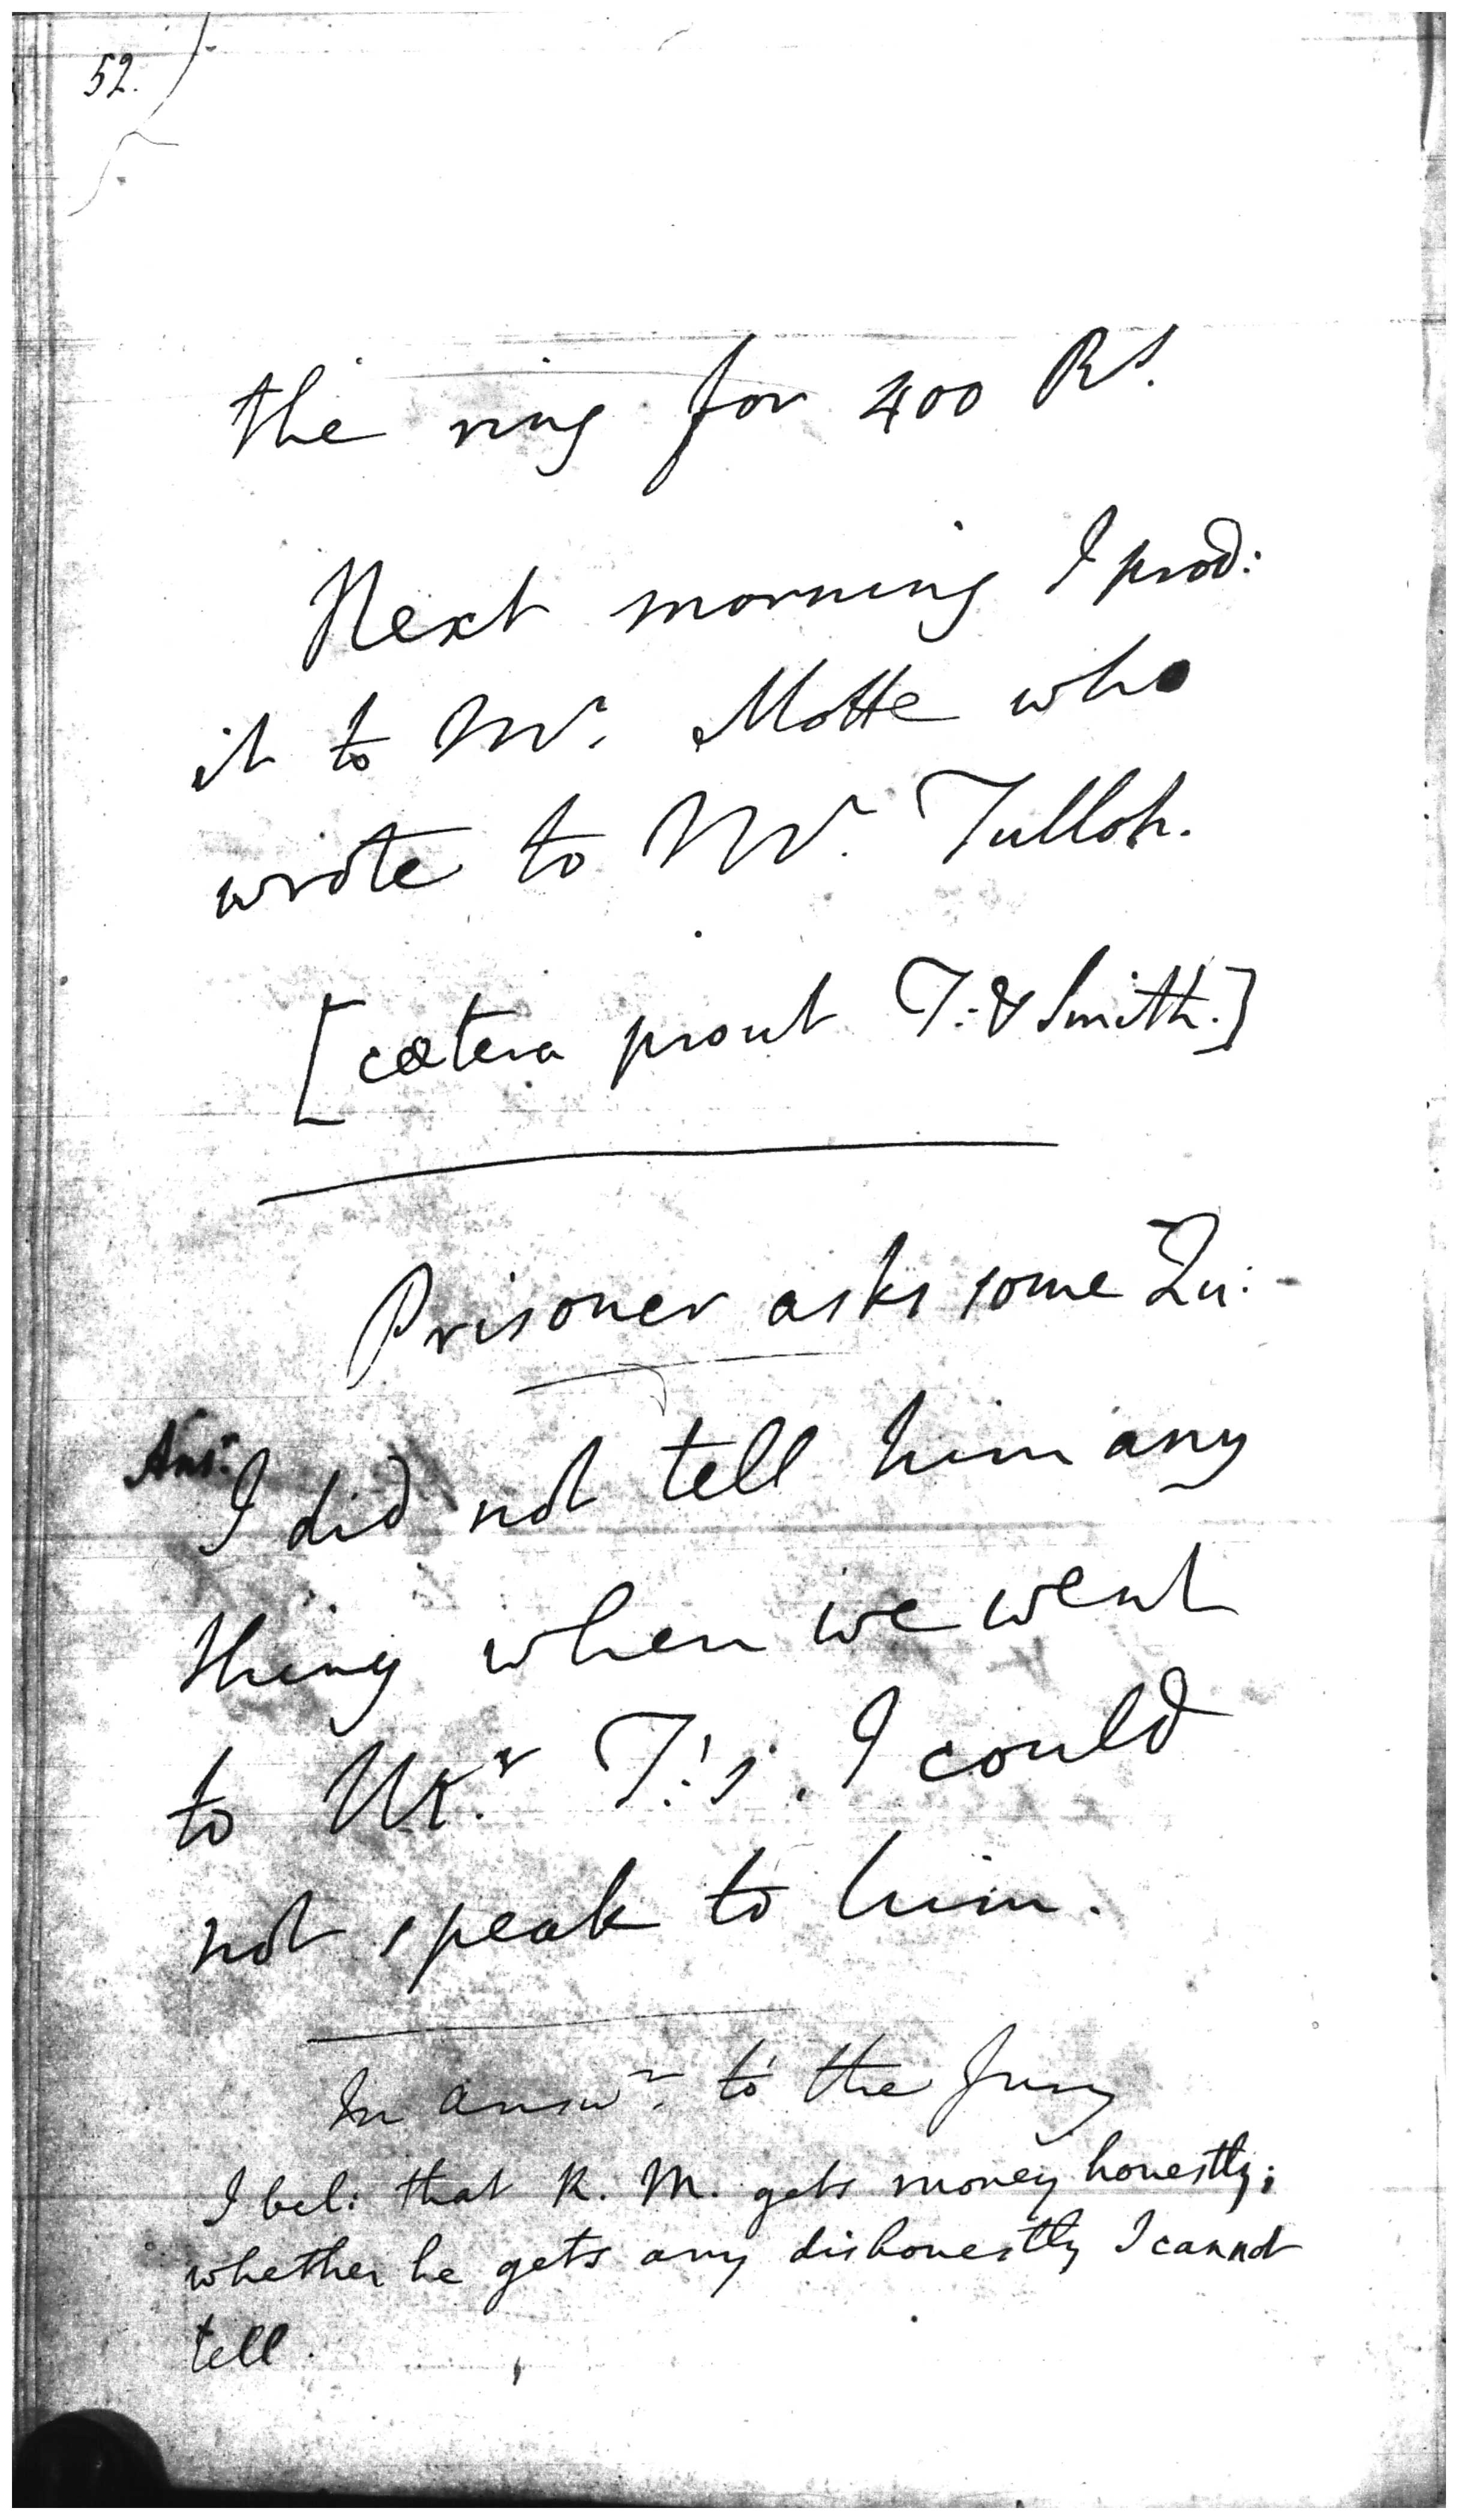 52.
the ring for 400 Rs.
Next morning I prod:
it to Mr. Motte who
wrote to Mr. Tulloh.
[cætera prout T: & Smith.]
Prisoner asks some Qu: -
Ansr:
I did not tell him any
thing when we went
to Mr. T:'s. I could
not speak to him.
In answr. to the Jury
I bel: that K. M. gets money honestly;
whether he gets any dishonestly I cannot
tell.